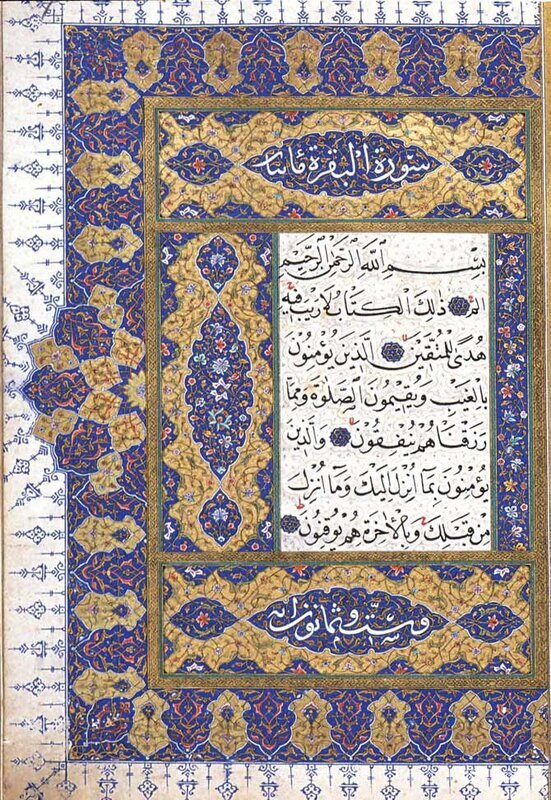 سورة البقرة مائتا
بِسْمِ اللَّهِ الرَّحْمَنِ الرَّحِيمِ
الم ذَلِكَ الْكِتَابُ لَا رَيْبَ فِيهِ
هُدًى لِلْمُتَّقِينَ الَّذِينَ يُؤْمِنُونَ
بِالْغَيْبِ وَيُقِيمُونَ الصَّلَوةَ وَمِمَّا
رَزَقْنَاهُمْ يُنْفِقُونَ وَالَّذِينَ
يُؤْمِنُونَ بِمَا أُنْزِلَ إِلَيْكَ وَمَا أُنْزِلَ
مِنْ قَبْلِكَ وَبِالْآخِرَةِ هُمْ يُوقِنُونَ
وست وثمانون آية